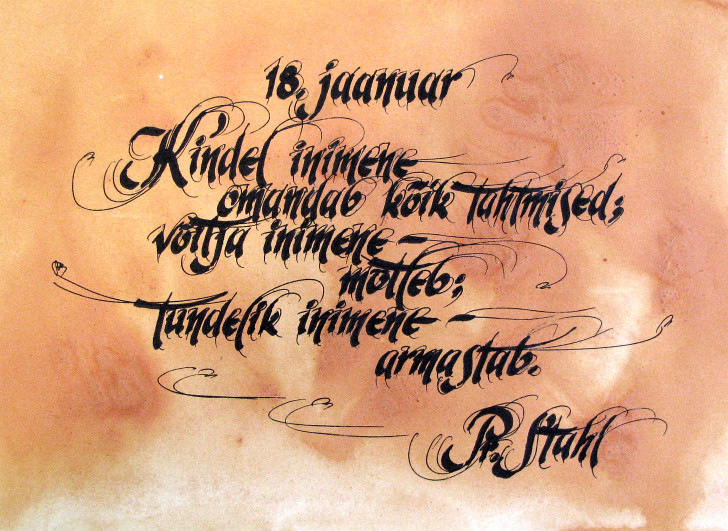 18. jaanuar
Kindel inimene
omandab kõik tahtmised;
võitja inimene –
mõtleb;
tundelik inimene –
armastab.
Pr. Stahl